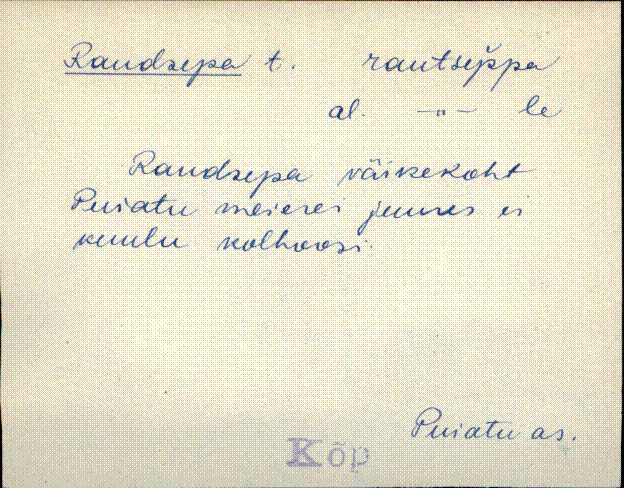 Raudsepa t. rautsèppa
al. —"— le
Raudsepa väikekoht
Puiatu meierei juures ei
kuulu kolhoosi.
Puiatu as.
Kõp